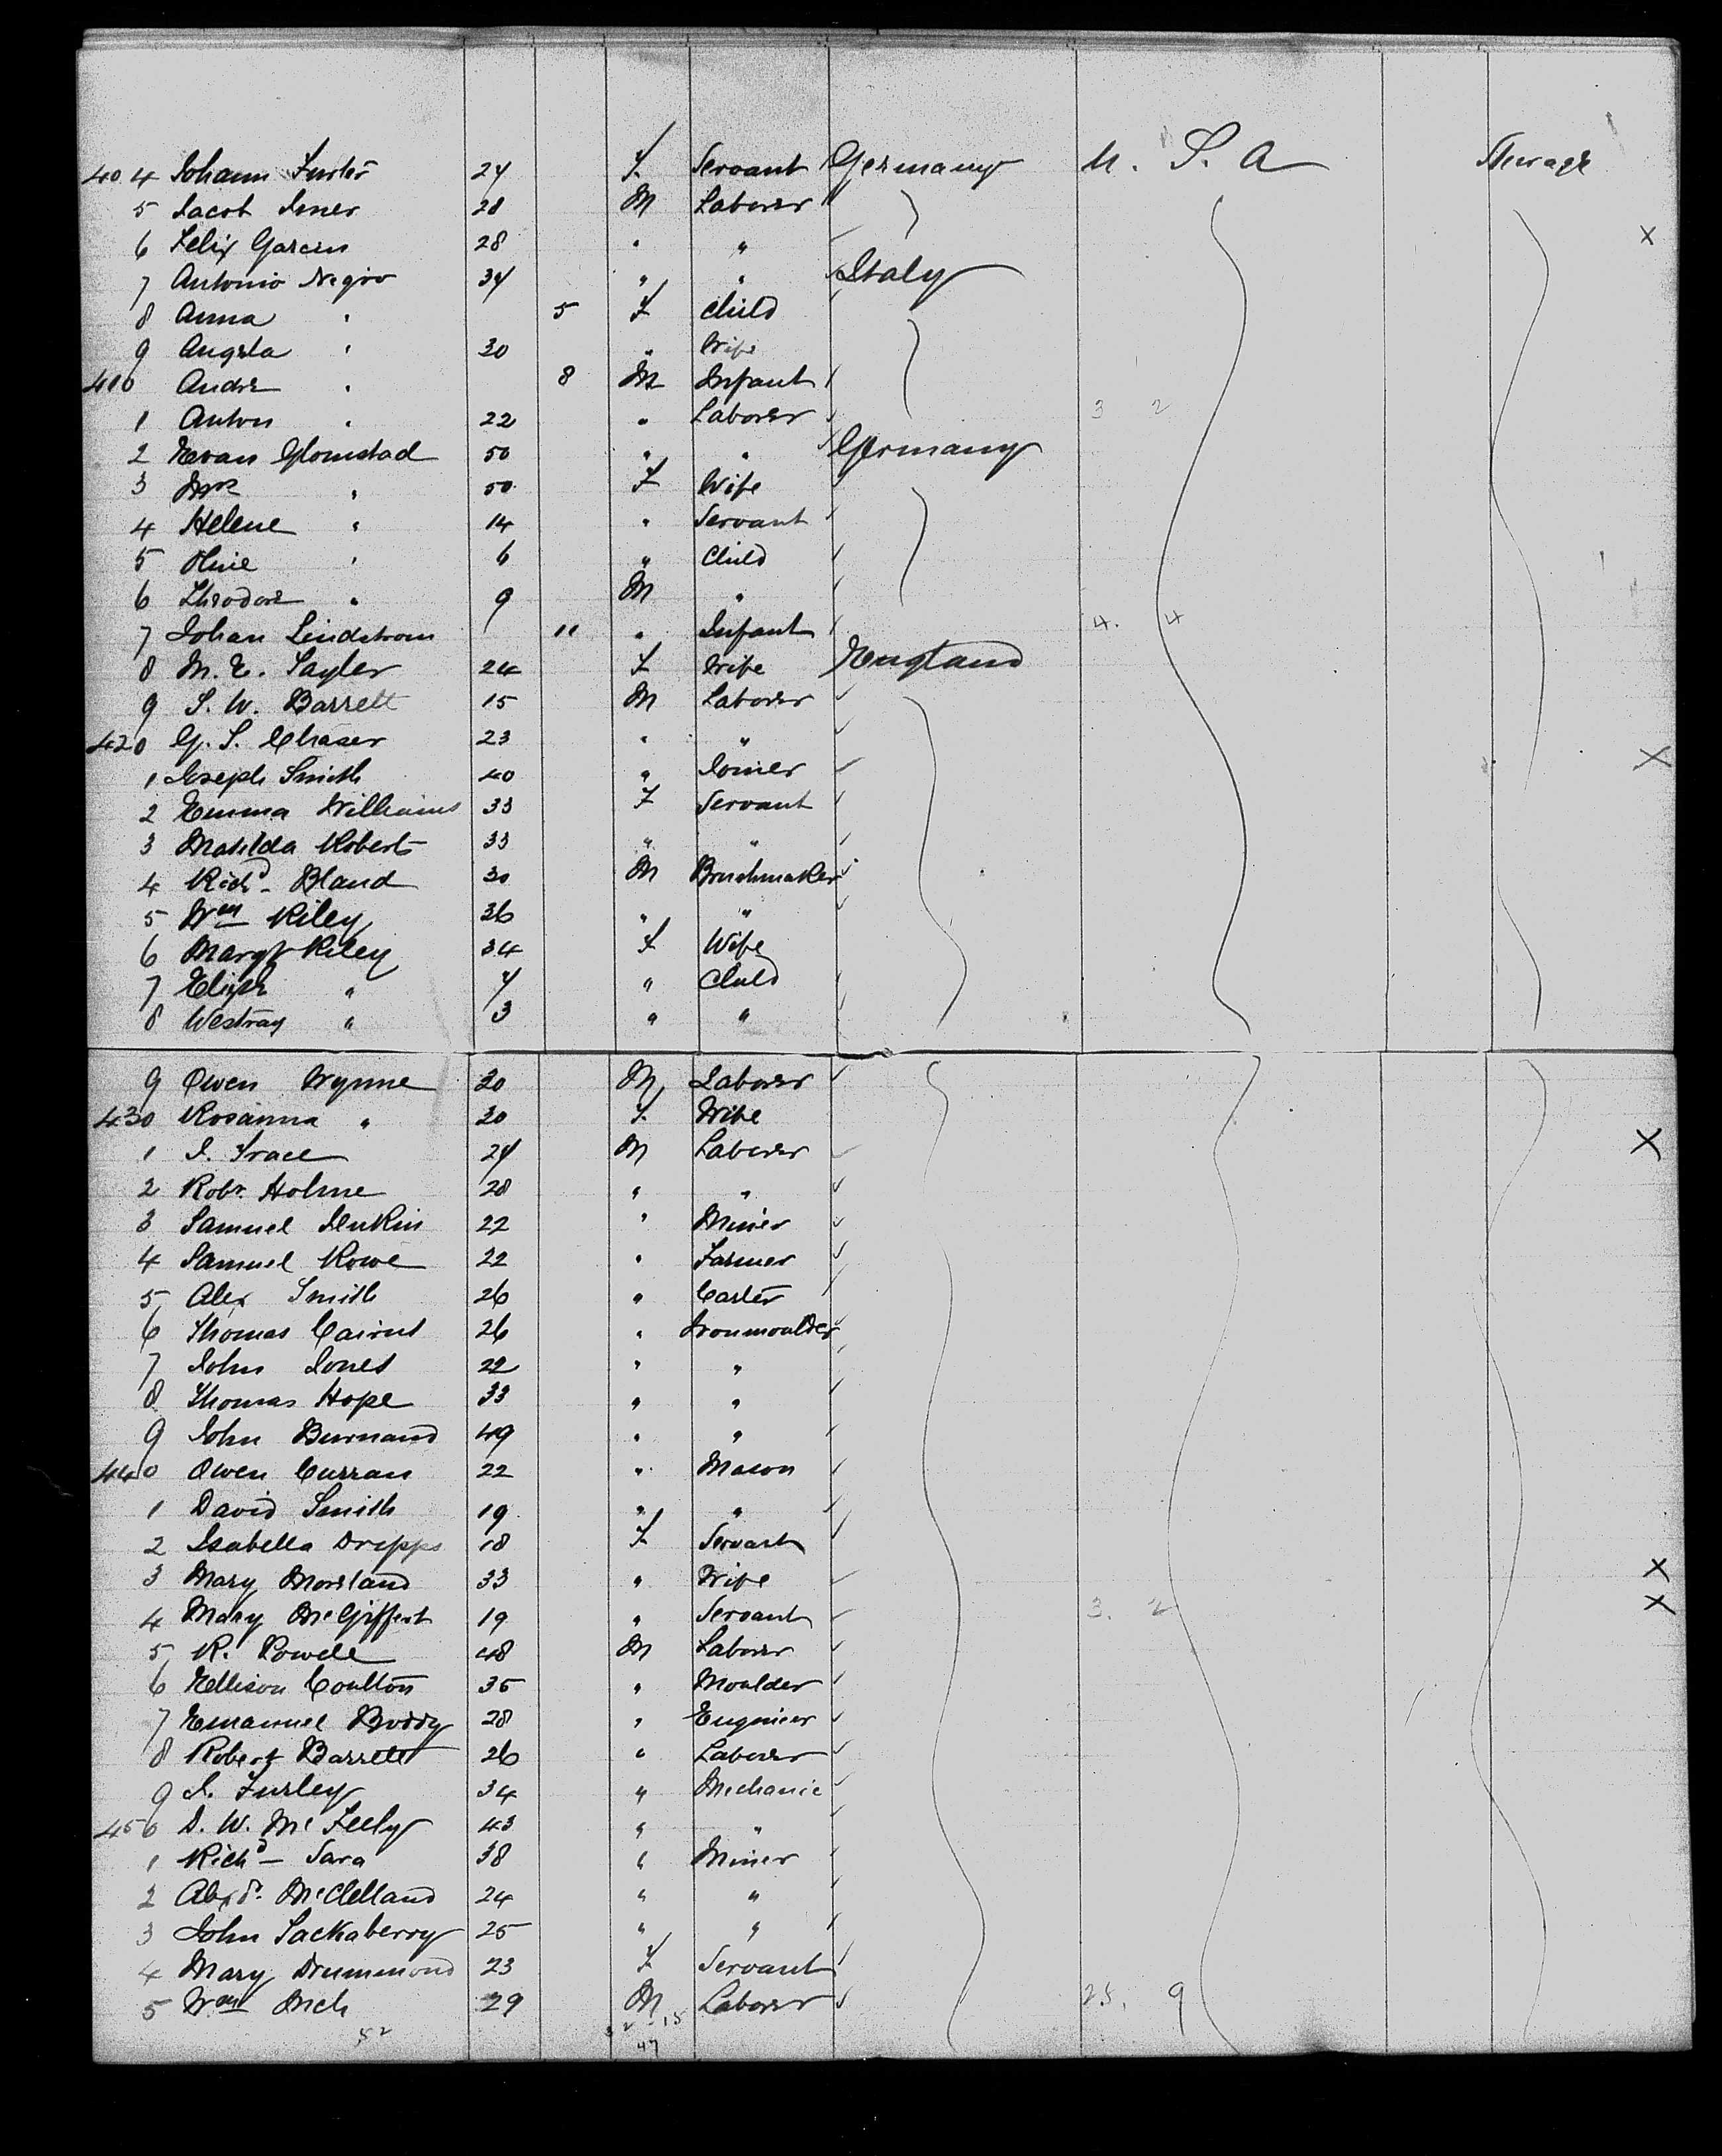 404 Johann Furter 24 F. Servant Germany U. S. A Steerage
5 Jacob Isner 28 M Laborer
6 Felix Garcin 28 " " X
7 Antonio Negro 34 " " Italy
8 Anna " 5 F Child
9 Angela " 30 " Wife
410 Andre " 8 M Infant
1 Anton " 22 " Laborer 3 2
2 Evan Glomstad 50 " " Germany
3 Mrs " 50 F Wife
4 Helene " 14 " Servant
5 Oline " 6 " Child
6 Theodore " 9 M "
7 Johan Lindstrom 11 " Infant 4. 4
8 M. E. Sayler 24 F Wife England
9 S. W. Barrett 15 M Laborer
420 G. S. Chaser 23 " "
1 Joseph Smith 40 " Joiner X
2 Emma Williams 33 F Servant
3 Matilda Robert 33 " "
4 Richd Bland 30 M Brushmaker
5 Wm Riley 36 " "
6 Margt Riley 34 F Wife
7 Elizth " 4 " Child
8 Westray " 3 " "
9 Owen Wynne 30 M Laborer
430 Rosanna " 30 F. Wife
1 J. Grace 24 M Laborer X
2 Robt. Holme 28 " "
3 Samuel Jenkin 22 " Miner
4 Samuel Rowe 22 " Farmer
5 Alex Smith 26 " Carter
6 Thomas Cairns 26 " Ironmoulder
7 John Jones 22 " "
8 Thomas Hope 33 " "
9 John Burnand 49 " "
440 Owen Curran 22 " Mason
1 David Smith 19 " "
2 Isabella Dripps 18 F Servant
3 Mary Morland 33 " Wife X
4 Mary McGiffert 19 " Servant 3. 2 X
5 R. Powell 48 M Laborer
6 Ellison Coulton 35 " Moulder
7 Emanuel Boddy 28 " Engineer
8 Robert Barrett 26 " Laborer
9 J. Furley 34 " Mechanic
450 D. W. McFeely 43 " "
1 Richd Sara 38 " Miner
2 Alexdr. McClelland 24 " "
3 John Sackaberry 25 " "
4 Mary Drummond 23 F Servant
5 Wm Mch 29 M Laborer 25. 9
52 15
47